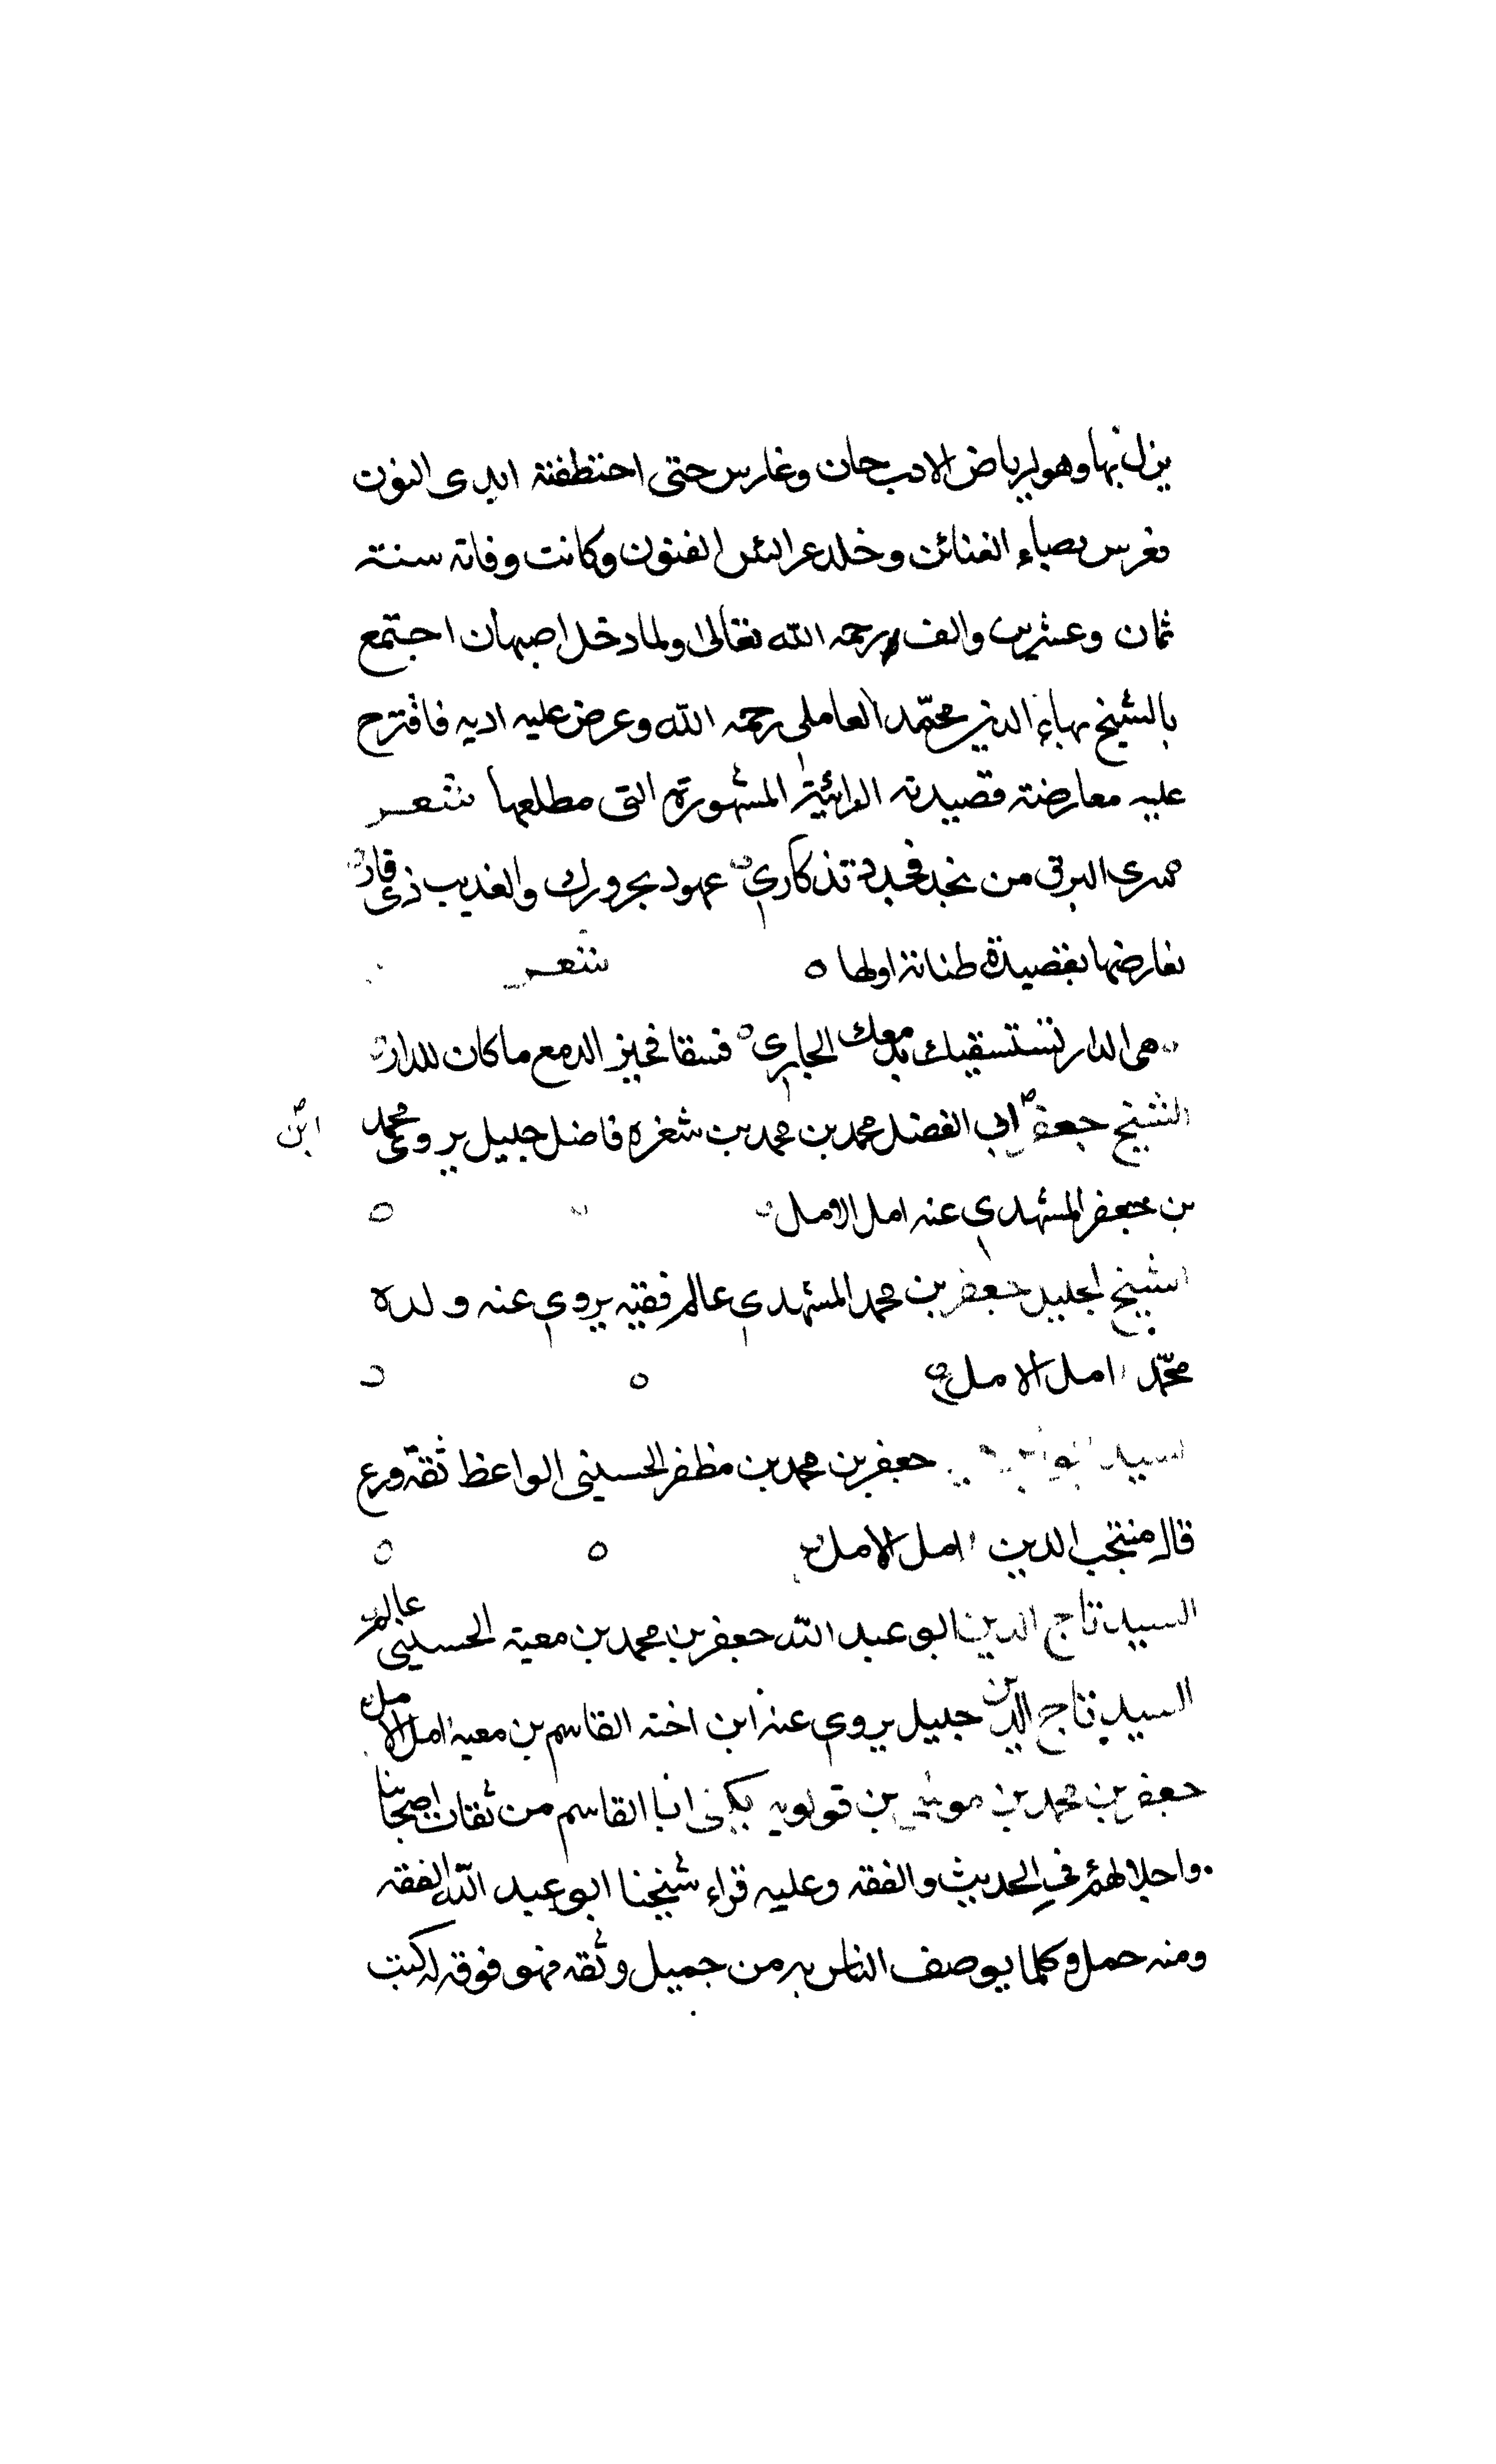 ينزل بها وهو لرياض الادب جان وغارس حتى اختطفته ايدى المنون
فعرس بصباء الفنائن وخلد عرائس الفنون وكانت وفاته سنة
ثمان وعشرين والف رحمه الله تعالى ولما دخل اصبهان اجتمع
بالشيخ بهاء الدين محمّد العاملى رحمه الله وعرض عليه ادبه فاقترح
عليه معارضته قصيدته الرائية المشهورة التى مطلعها شعر
سرى البرق من نجد فجدد تذكارى عهود بحزورك والعذيب ذى قار
فعارضها بقصيدة طنانة اولها شعر
هى الدار تستسقيك بدمعك الجارى فسقا فخير الدمع ما كان للدار
الشيخ جعفر ابن ابى الفضل محمد بن محمد بن شعره فاضل جليل يروى عنه محمد
بن جعفر المشهدى عنه امل الامل
الشيخ الجليل جعفر بن محمد المشهدى عالم فقيه يروى عنه ولده
محمّد امل الامل
السيد جعفر بن محمد بن مظفر الحسينى الواعظ ثقة ورع
قال منتجب الدين امل الامل
السيد تاج الدين ابو عبد الله جعفر بن محمد بن معية الحسينى عالم
السيد تاج الدين جليل يروى عنه ابن اخته القاسم بن معية امل الامل
جعفر بن محمد بن موسى بن قولويه يكنى ابا القاسم من ثقات اصحابنا
واجلائهم فى الحديث والفقه وعليه قراء شيخنا ابو عبد الله الفقه
ومنه حمل وكلما يوصف الناس به من جميل وثقه فهو فوقه له كتب